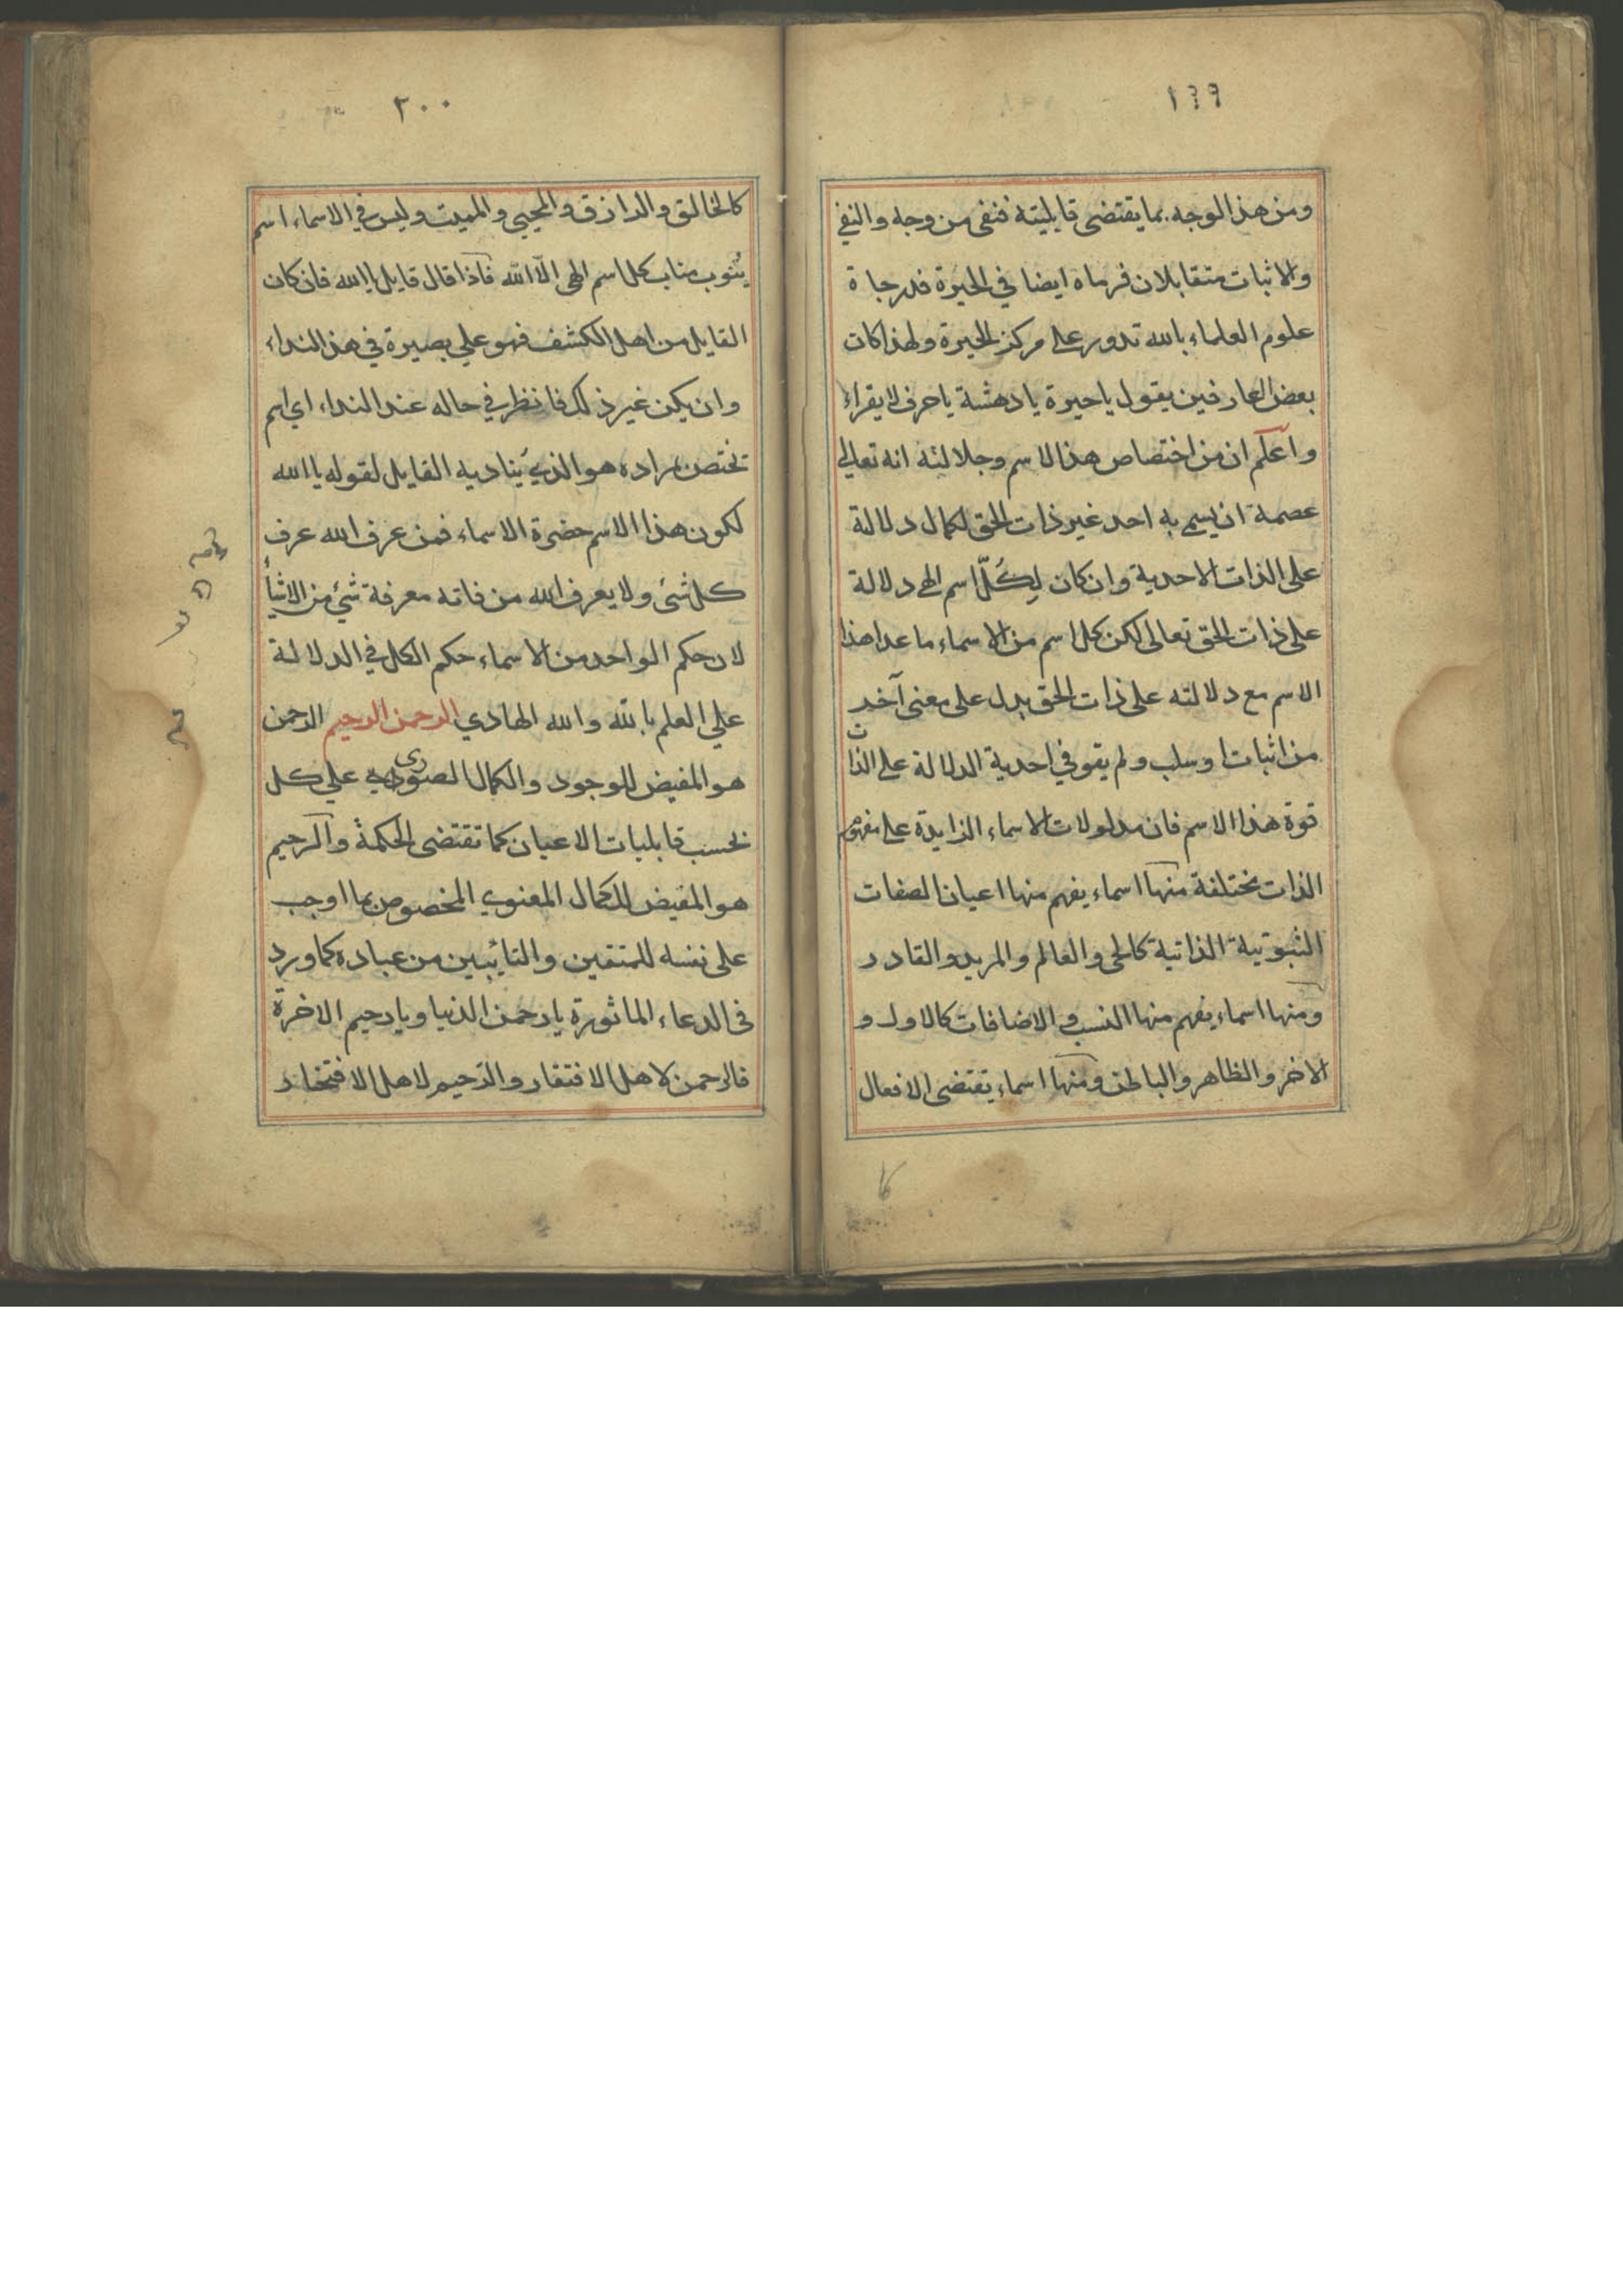 ١٩٩
ومن هذا الوجه بما يقتضى قابليته فنفى من وجه والنفي
والاثبات متقابلان فرماه ايضا في الحيرة فدرجاة
علوم العلماء بالله تدور على مركز الحيرة ولهذا كات
بعض العارفين يقول يا حيرة يا دهشة يا حرف لا يقراء
واعلم ان من اختصاص هذا الاسم وجلالته انه تعالي
عصمة ان يسمي به احد غير ذات الحق لكمال دلالة
على الذات الاحدية وان كان لِكُلّ اسم الهي دلالة
على ذات الحق تعالى لكن كل اسم من الاسماء ما عدا هذا
الاسم مع دلالته على ذات الحق يدل على معنى آخر
من اثبات او سلب ولم يقو في احدية الدلالة على الذات
قوة هذا الاسم فان مدلولات الاسماء الزايدة على مفهوم
الذات مختلفة منها اسماء يفهم منها اعيان الصفات
الثبوتية الذاتية كالحى والعالم والمريد والقادر
ومنها اسماء يفهم منها النسب والاضافات كالاول و
الاخر والظاهر والباطن ومنها اسماء يقتضى الافعال
كا
٢٠٠
كالخالق والرازق والمحيي والمميت وليس في الاسماء اسم
ينوب مناب كل اسم الهى الّا الله فاذا قال قايل يا الله فان كان
القايل من اهل الكشف فهو علي بصيرة في هذا النداء
وان يكن غير ذلك فانظر في حاله عند النداء اي اسم
تختص مراده هو الذي يناديه القايل لقوله يا الله
لكون هذا الاسم حضرة الاسماء فمن عرف الله عرف
كل شئ ولا يعرف الله من فاته معرفة شئ من الاشيأ
لان حكم الواحد من الاسماء حكم الكل في الدلالة
علي العلم بالله والله الهادي الرحمن الرحيم الرحمن
هو المفيض للوجود والكمال الصورى علي كل
بحسب قابليات الاعيان كما تقتضى الحكمة والرحيم
هو المفيض للكمال المعنوي المخصوص بما اوجب
على نفسه للمتقين والتائبين من عباده كما ورد
فى الدعاء الماثورة يا رحمن الدنيا ويا رحيم الاخرة
فالرحمن لاهل الافتقار والرحيم لاهل الافتخار